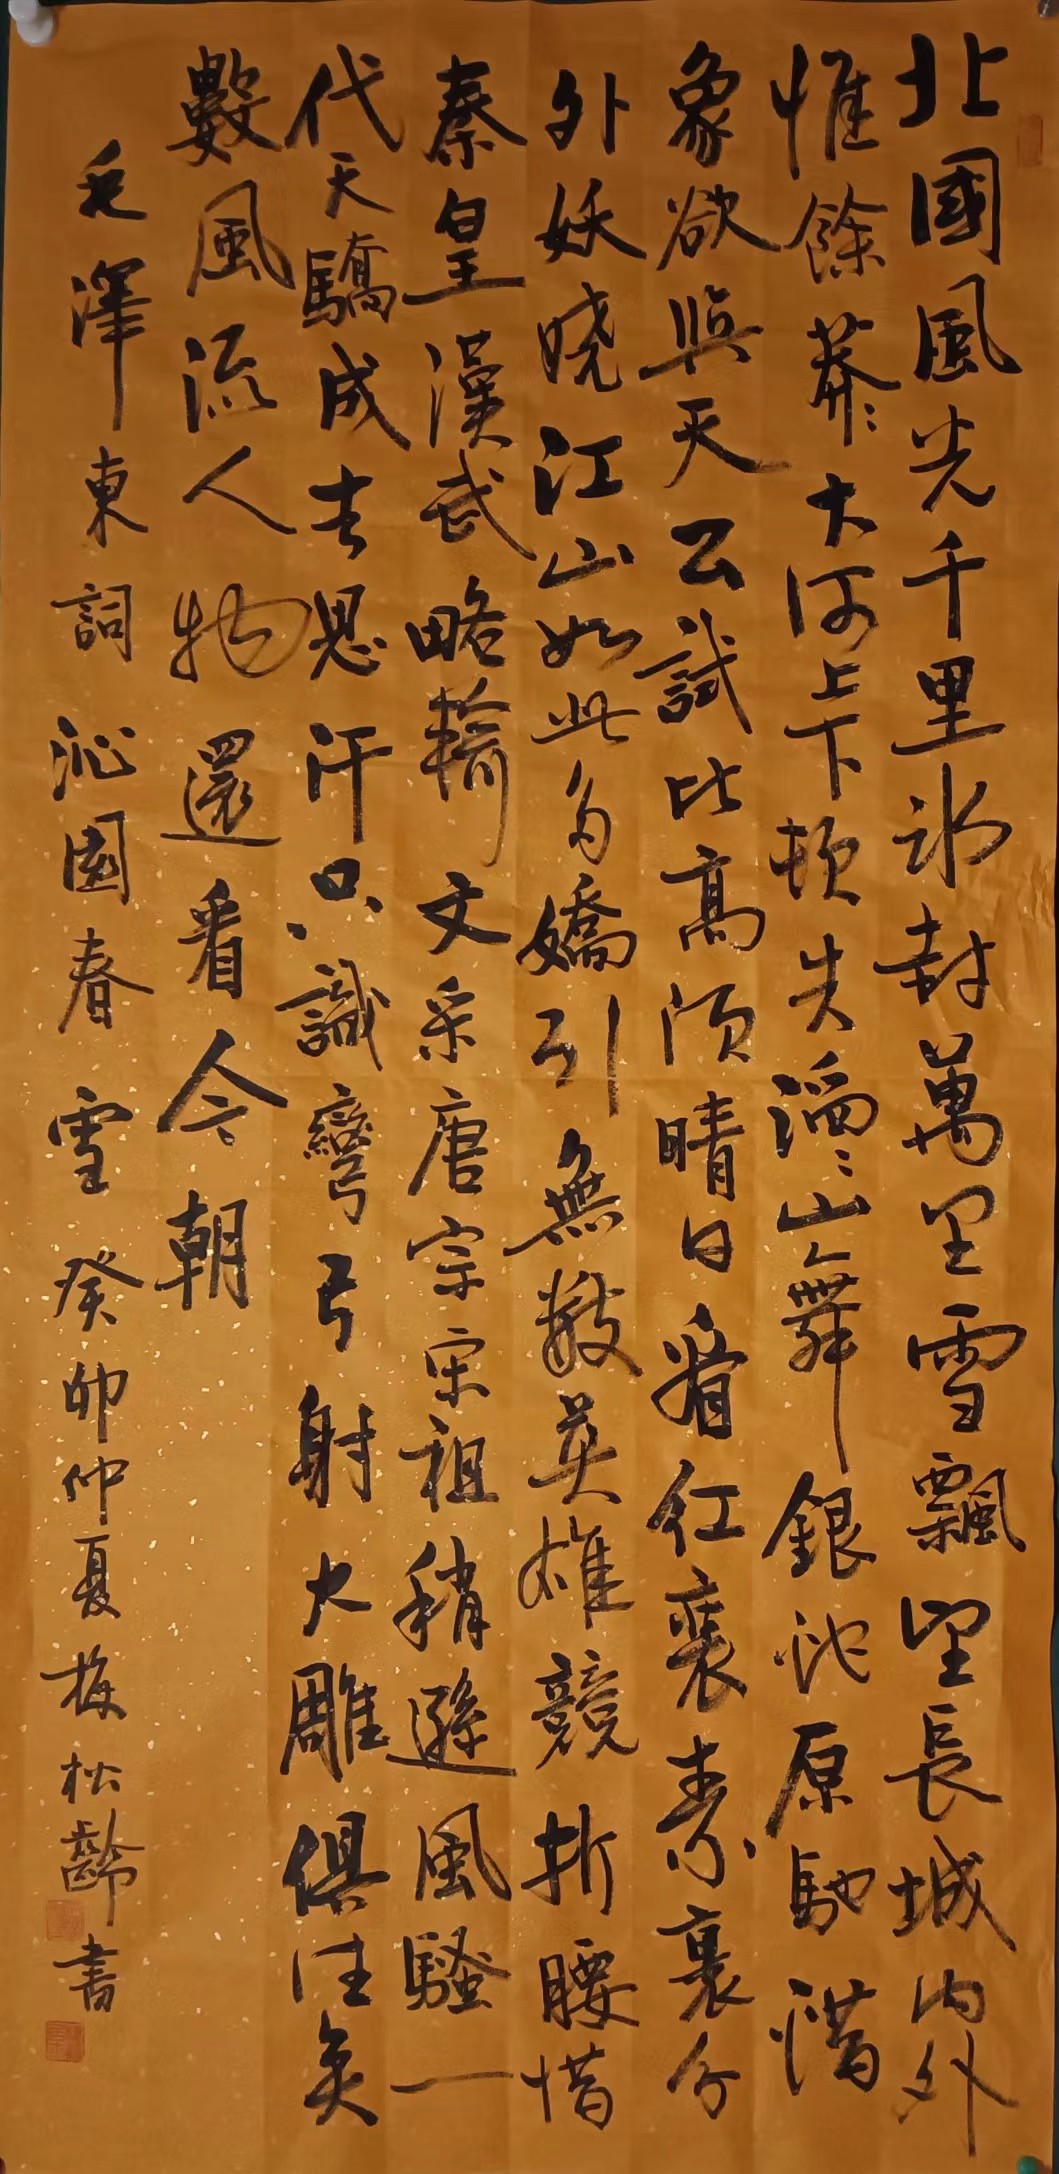 北國風光千里冰封萬里雪飄望長城内外
惟餘莽〻大河上下頓失滔〻山舞銀蛇原馳蜡
象欲與天公試比高須晴日看紅裝素裹分
外妖娆江山如此多嬌引無數英雄競折腰惜
秦皇漢武略輸文采唐宗宋祖稍遜風騷一
代天驕成吉思汗只識彎弓射大雕俱往矣
數風流人物還看今朝
毛澤東詞沁園春雪癸卯仲夏梅松齡書